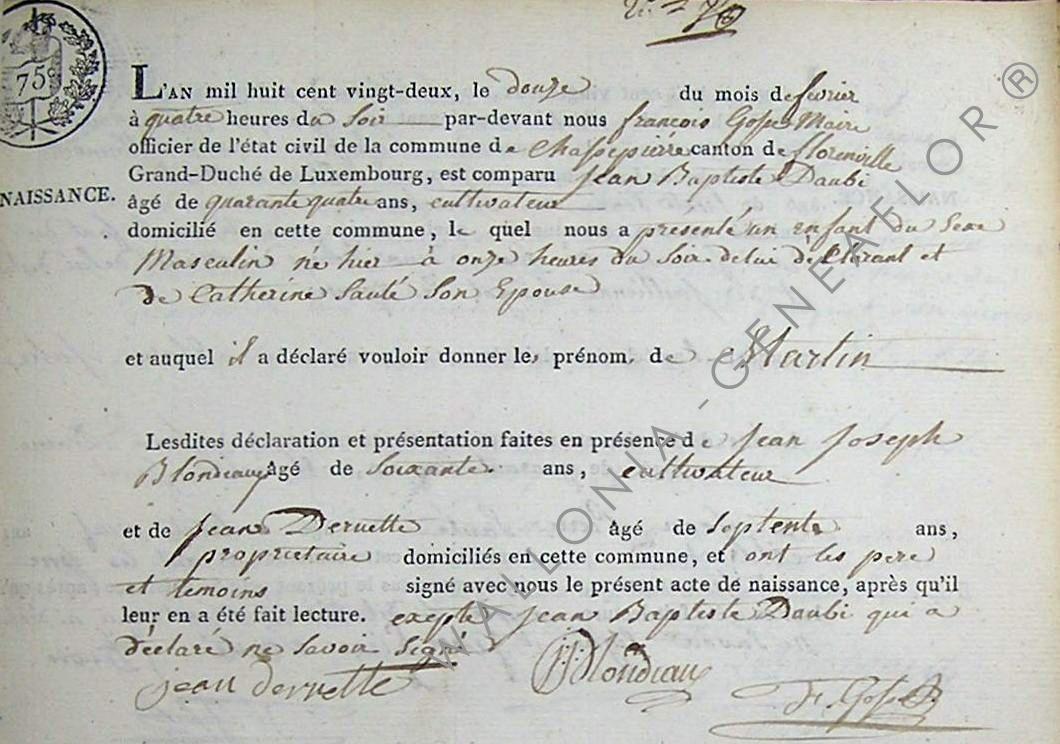 70
75
L'AN mil huit cent vingt-deux, le douze du mois de fevrier
à quatre heures du Soir par-devant nous françois Gofse Maire
officier de l'état civil de la commune de Chassepierre canton de florenville
Grand-Duché de Luxembourg, est comparu Jean Baptiste Daubi
NAISSANCE.
âgé de quarante quatre ans, cultivateur
domicilié en cette commune, le quel nous a presenté un enfant du Sexe
Masculin né hier à onze heures du Soir de lui déClarant et
de Catherine Sauté Son Epouse
et auquel il a déclaré vouloir donner les prénom de Martin
Lesdites déclaration et présentation faites en présence de Jean Joseph
Blondeau âgé de Soixante ans, cultivateur
et de Jean Dervette âgé de Septente ans,
proprietaire domiciliés en cette commune, et ont les pere
et temoins signé avec nous le présent acte de naissance, après qu'il
leur en a été fait lecture. exepte Jean Baptiste Daubi qui a
déclaré ne Savoir Signé
jean dervette JJ Blondeau
F. Gofse
WALLONIA - GENEAFLOR ®